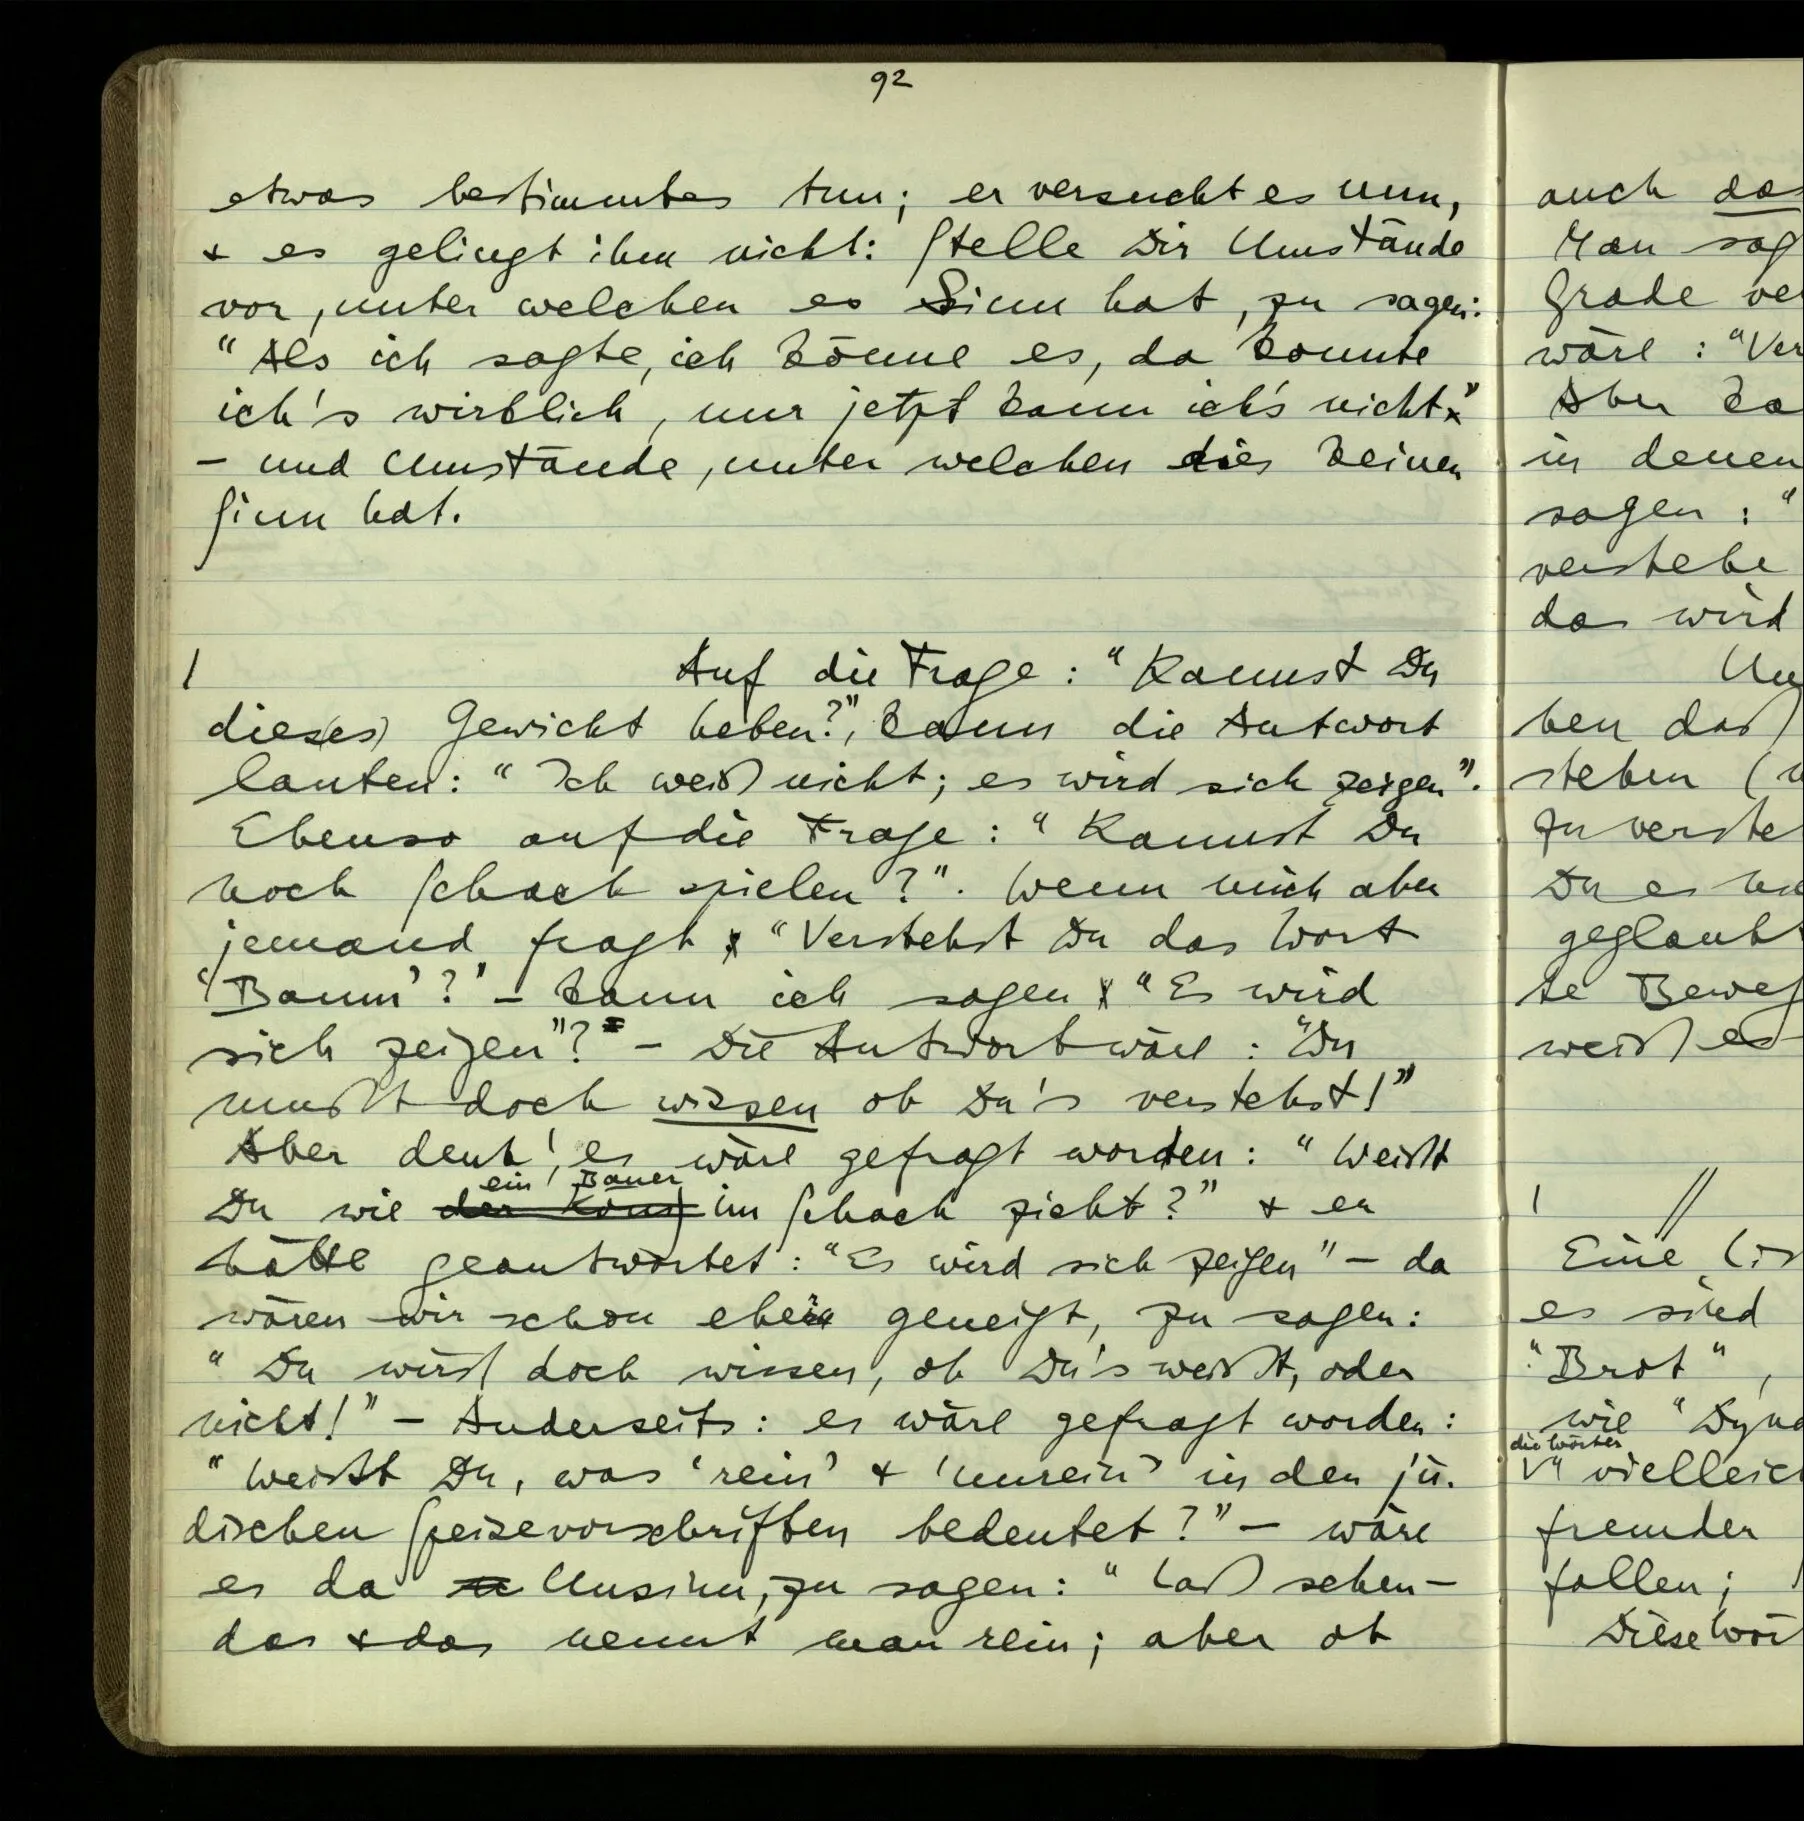 92
etwas bestimmtes tun; er versucht es nun,
& es gelingt ihm nicht: Stelle Dir Umstände
vor, unter welchen es Sinn hat, zu sagen:
"Als ich sagte, ich könne es, da konnte
ich's wirklich, nur jetzt kann ich's nicht"
– und Umstände, unter welchen dies keinen
Sinn hat.
/ Auf die Frage: "Kannst Du
dieses Gewicht heben?", kann die Antwort
lauten: "Ich weiß nicht; es wird sich zeigen".
Ebenso auf die Frage: "Kannst Du
noch Schach spielen?". Wenn mich aber
jemand fragt "Verstehst Du das Wort
'Baum'?" – kann ich sagen "Es wird
sich zeigen"? – Die Antwort wäre: "Du
mußt doch wissen ob Du's verstehst!"
Aber denk', es wäre gefragt worden: "Weißt
ein Bauer
Du wie der König im Schach zieht?" & er
hätte geantwortet: "Es wird sich zeigen" – da
wären wir schon eher geneigt, zu sagen:
"Du wirst doch wissen, ob Du's weißt, oder
nicht!" – Anderseits: es wäre gefragt worden:
"Weißt Du, was 'rein' & 'unrein' in den jü-
dischen Speisevorschriften bedeutet?" – wäre
es da Unsinn, zu sagen: "Laß sehen –
das & das nennt man rein; aber ob
auch das
Man sag
Grade ve
wäre: "Ver
Aber ka
in denen
sagen: "
verstehe
das wird
ben daß
stehen (
zu verste
Du es
geglaubt
te Beweg
weiß es
/ //
Eine
es sind
"Brot",
wie "Dyna
die Wörter
vielleic
fremder
fallen;
Diese Wör